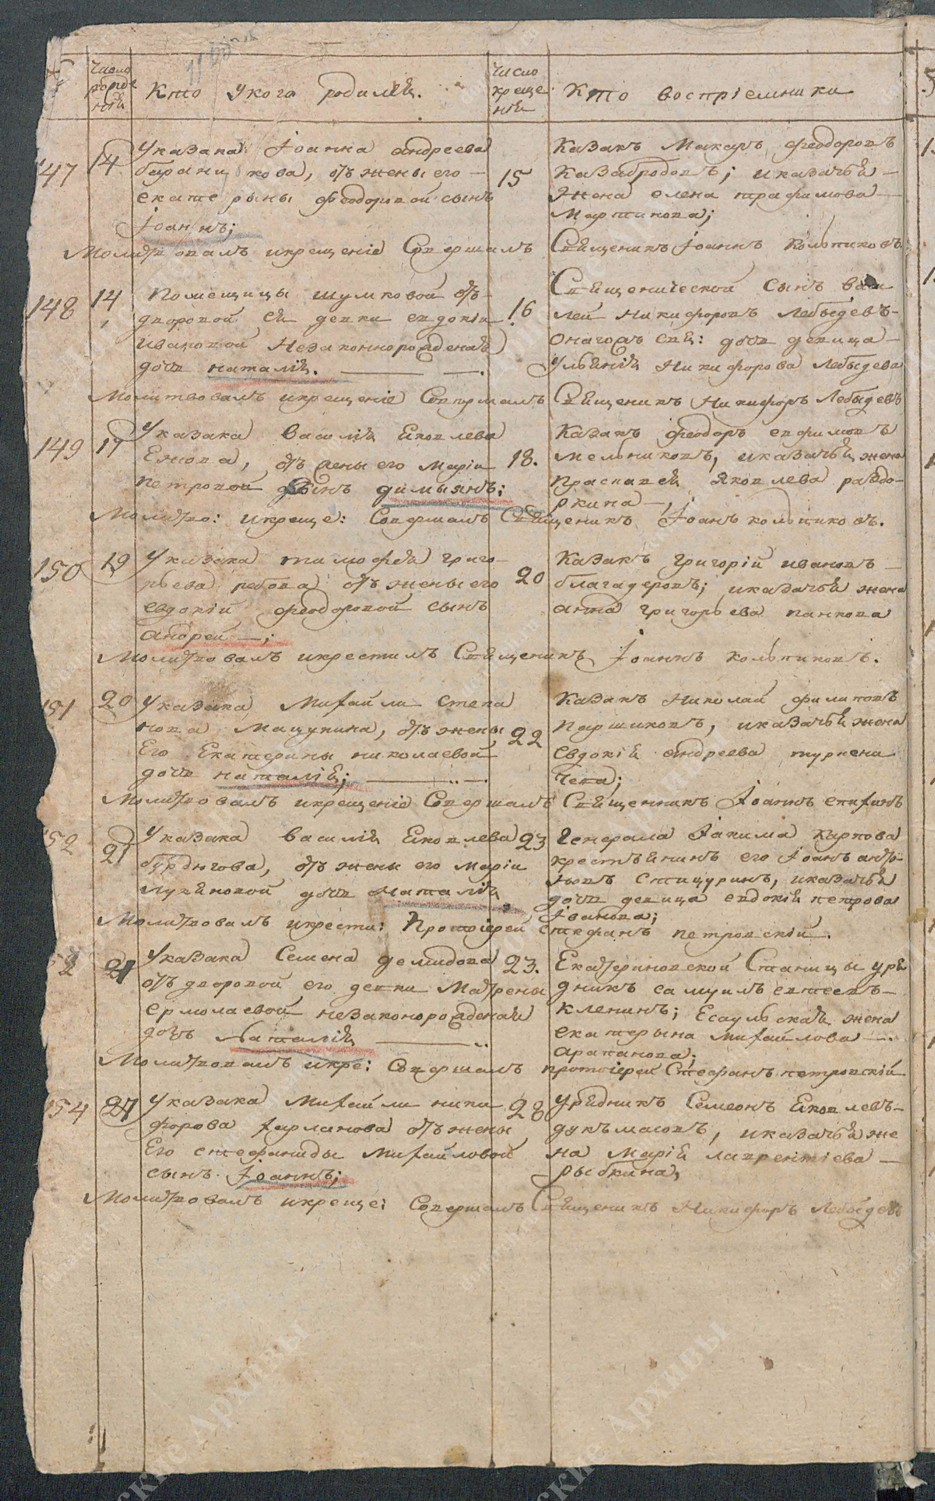 Число рожде ній
Кто Укого родилсѧ.
число креще нія
Кто воспріемники
147
14
Указака Іоанна Андреева
баранни кова, отъ жены его
екатерины феодоровой сынъ
Іоаннъ;
15
Казакъ Макаръ Феодоровъ
Казабродовъ; иказачья
жена елена трафимова
Мартинова;
Молитвовалъ икрещеніе Совершалъ Священикъ Іоаннъ Колпиковъ
148
14
Помещицы шумковой отъ
дворовой ея девки евдокіи
Ивановой Незаконнорожденая
дочь наталія.
16
Священической сынъ васи
лей Никифоровъ Лебедевъ
Онагожъ свя: дочь девица
Ульянія Никифорова Лебедева
Молитвовалъ икрещеніе Совершалъ Священикъ Никифоръ Лебедевъ
149
17
Указака Василія Яковлева
Ежова, отъ жены его Маріи
Петровой сынъ димыянъ;
18.
Казакъ Феодоръ ефимовъ
мельниковъ, иказачья жена
Праскавея Яковлева раздо-
ркина
Молитво: икреще: Совершалъ Священикъ Іоанъ колпиковъ.
150
19
Указака тимофея григо-
рьева ребова отъ жены его
евдокіи феодоровой сынъ
андрей
20
Казакъ Григорій ивановъ
благадеровъ; иказачья жена
анна григорьева панкова
Молитвовалъ икрестилъ Священикъ Іоаннъ колпиковъ.
151
20
Указака Михайли степа
нова Мацунина, отъ жены
Его Екатерины николаевой
дочь наталія;
22
Казакъ Николай филиповъ
Паршиковъ, иказачья жена
Евдокія Андреева турчени
чева;
Молитвовалъ икрещеніе Совершалъ Священникъ Іоаннъ епифанъ
152
21
Указака Василія Яковлева
бурднгова, отъ жены его Маріи
лукяновой дочь наталія
23
Генерала Іакима Карпова
крестьянинъ его Іоанъ анто-
новъ Стицуринъ, иказачья
дочь девица евдокія петрова
Іванова;
Молитвовалъ икрести: Протоіерей Стефанъ петровскій.
21
Указака Семена демидова
отъ дворовой его девки Матрены
ермолаевой незаконорожденая
дочь наталія
23.
Екатериновской Станицы уря
дникъ самуилъ евтеевъ
кленинъ; Есаульская жена
екатерына Михайлова
Арапанова;
Молитвовалъ икре: Совершалъ протоіерей Стефанъ петровскій
154
27
Указака Михайли ники
форова харланова отъ жены
Его стефаниды Михайловой
сынъ Іоаннъ;
28
Урядникъ Семеонъ Яковлевъ
дукмасовъ, иказачья же
на Марія лаврентіева
рыбкина;
Молитвовалъ икреще: Совершалъ Священикъ Никифоръ Лебедевъ